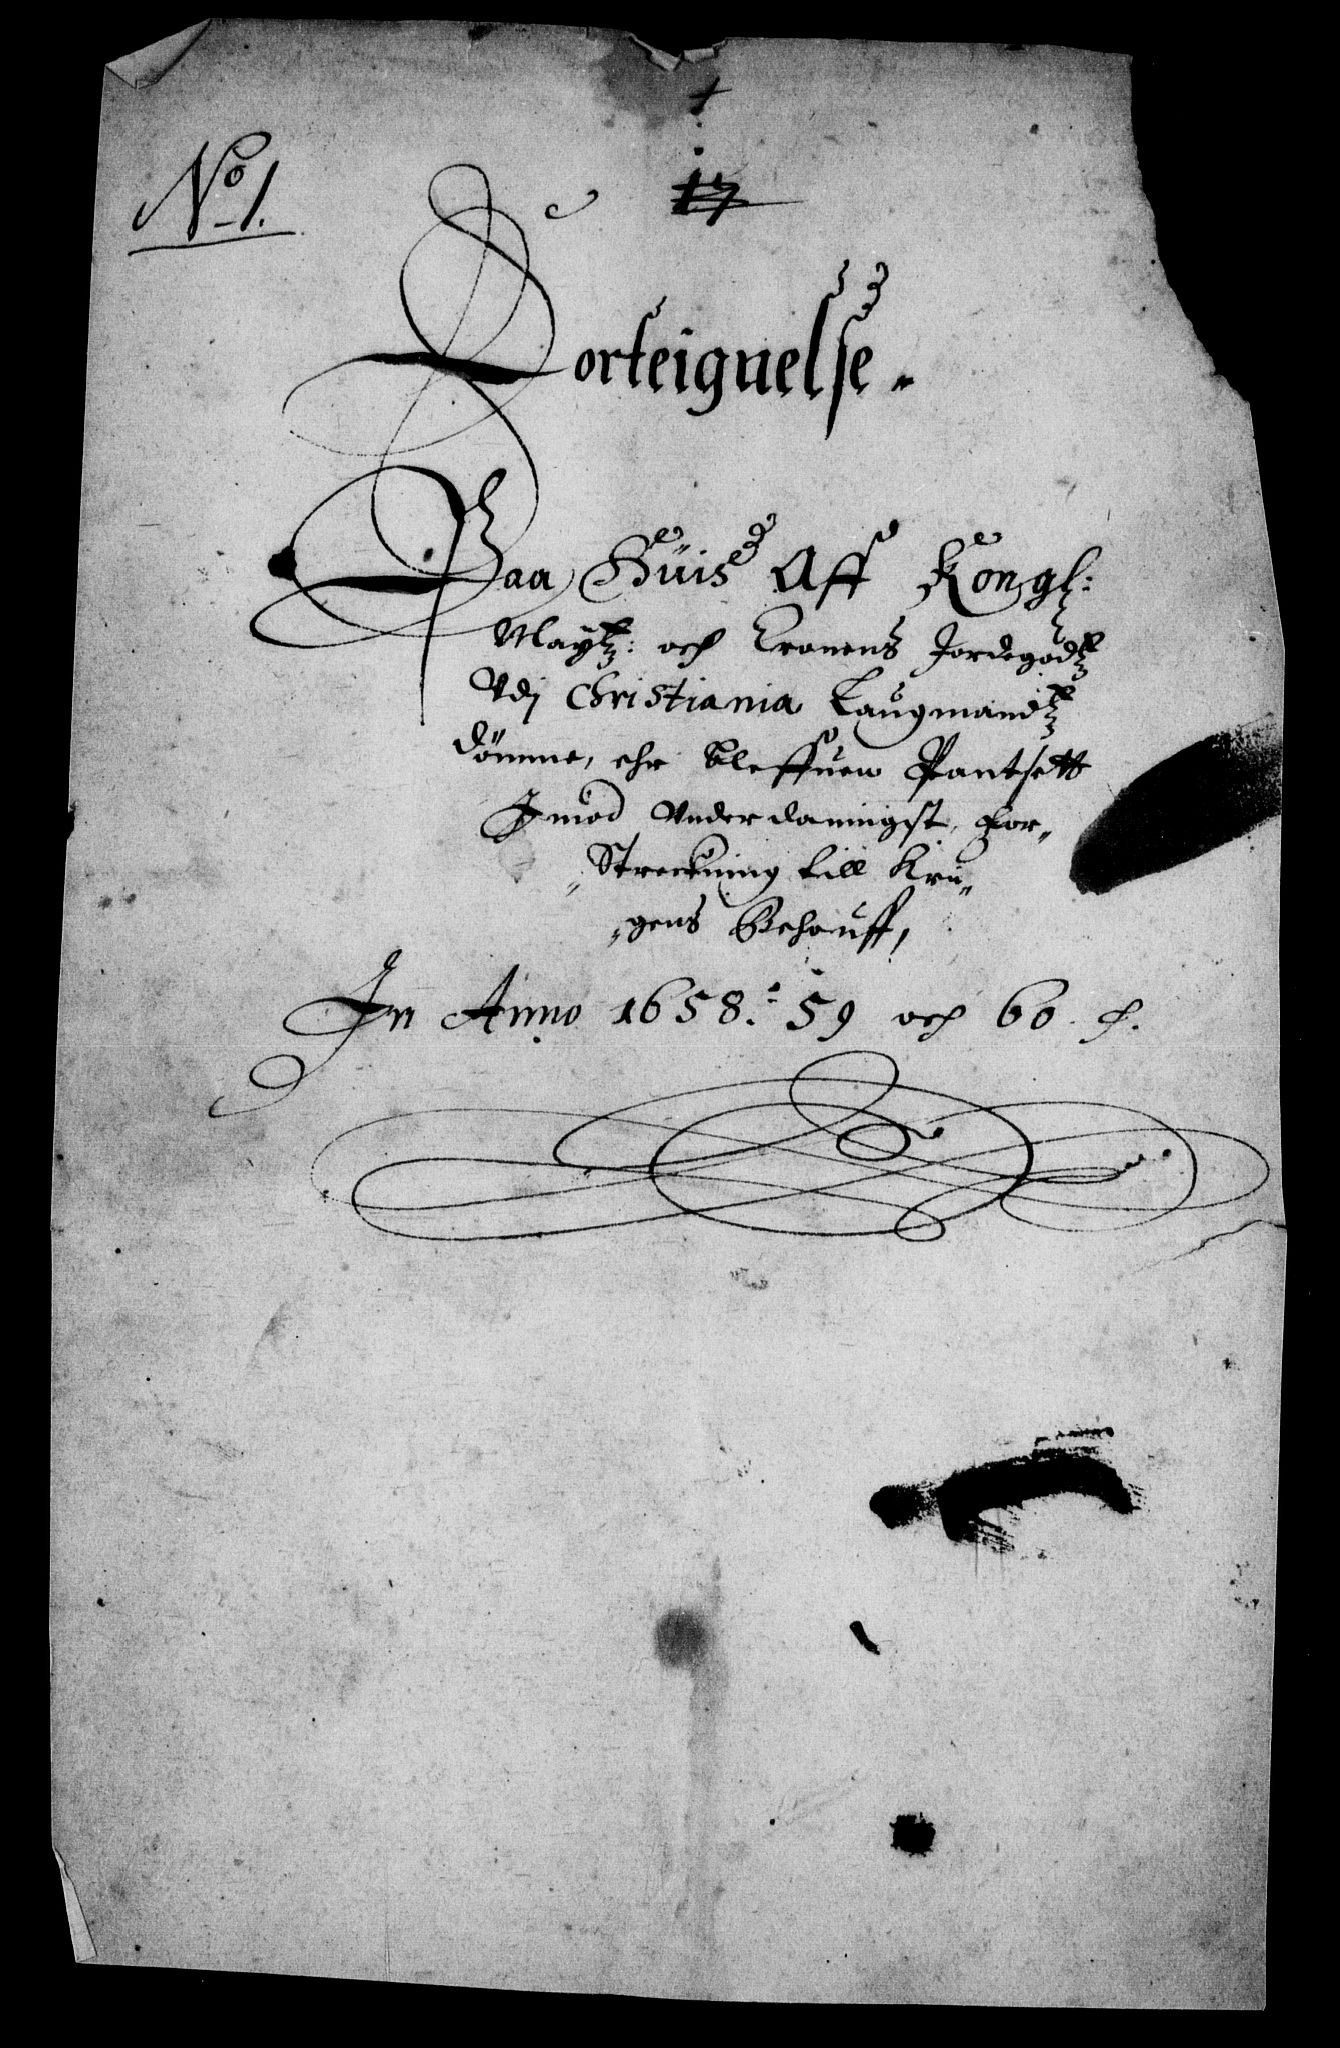 No 1.
17
Forteignelse.
Paa Huis Aff Kongl:
Maytz: och Cronens Jordegodtz
Udj Christiania Laugmandtz
dömme, ehr bleffuen Pantsett
Jmod Underdanningst, For„
„Streckning till Krii„
„gens Behouff,
In Anno 1658: 59 och 60.